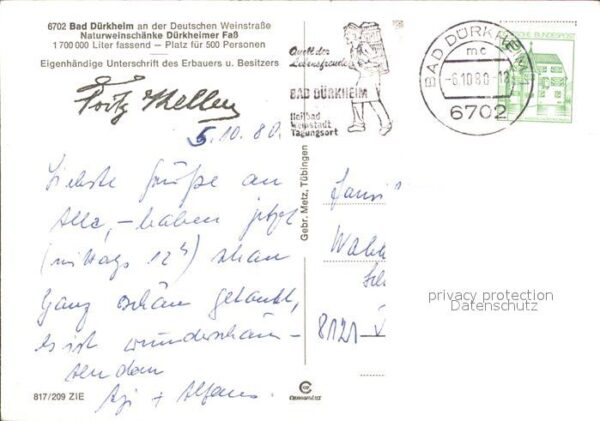 6702 Bad Dürkheim an der Deutschen Weinstraße
Naturweinschänke Dürkheimer Faß
1 700 000 Liter fassend — Platz für 500 Personen
Eigenhändige Unterschrift des Erbauers u. Besitzers
Fritz Keller
5.10.80.
Liebste Grüße an
Alle, – haben jetzt
(mittags 12h) schon
Ganz schön getankt,
Es ist wunderschön
+
817/209 ZIE
Gebr. Metz, Tübingen
Quell der
Lebensfreude
BAD DÜRKHEIM
Heilbad
Weinstadt
Tagungsort
BAD DÜRKHEIM
mc
-6.10.80.-
6702
DEUTSCHE BUNDESPOST
Fami
8121
privacy protection
Datenschutz